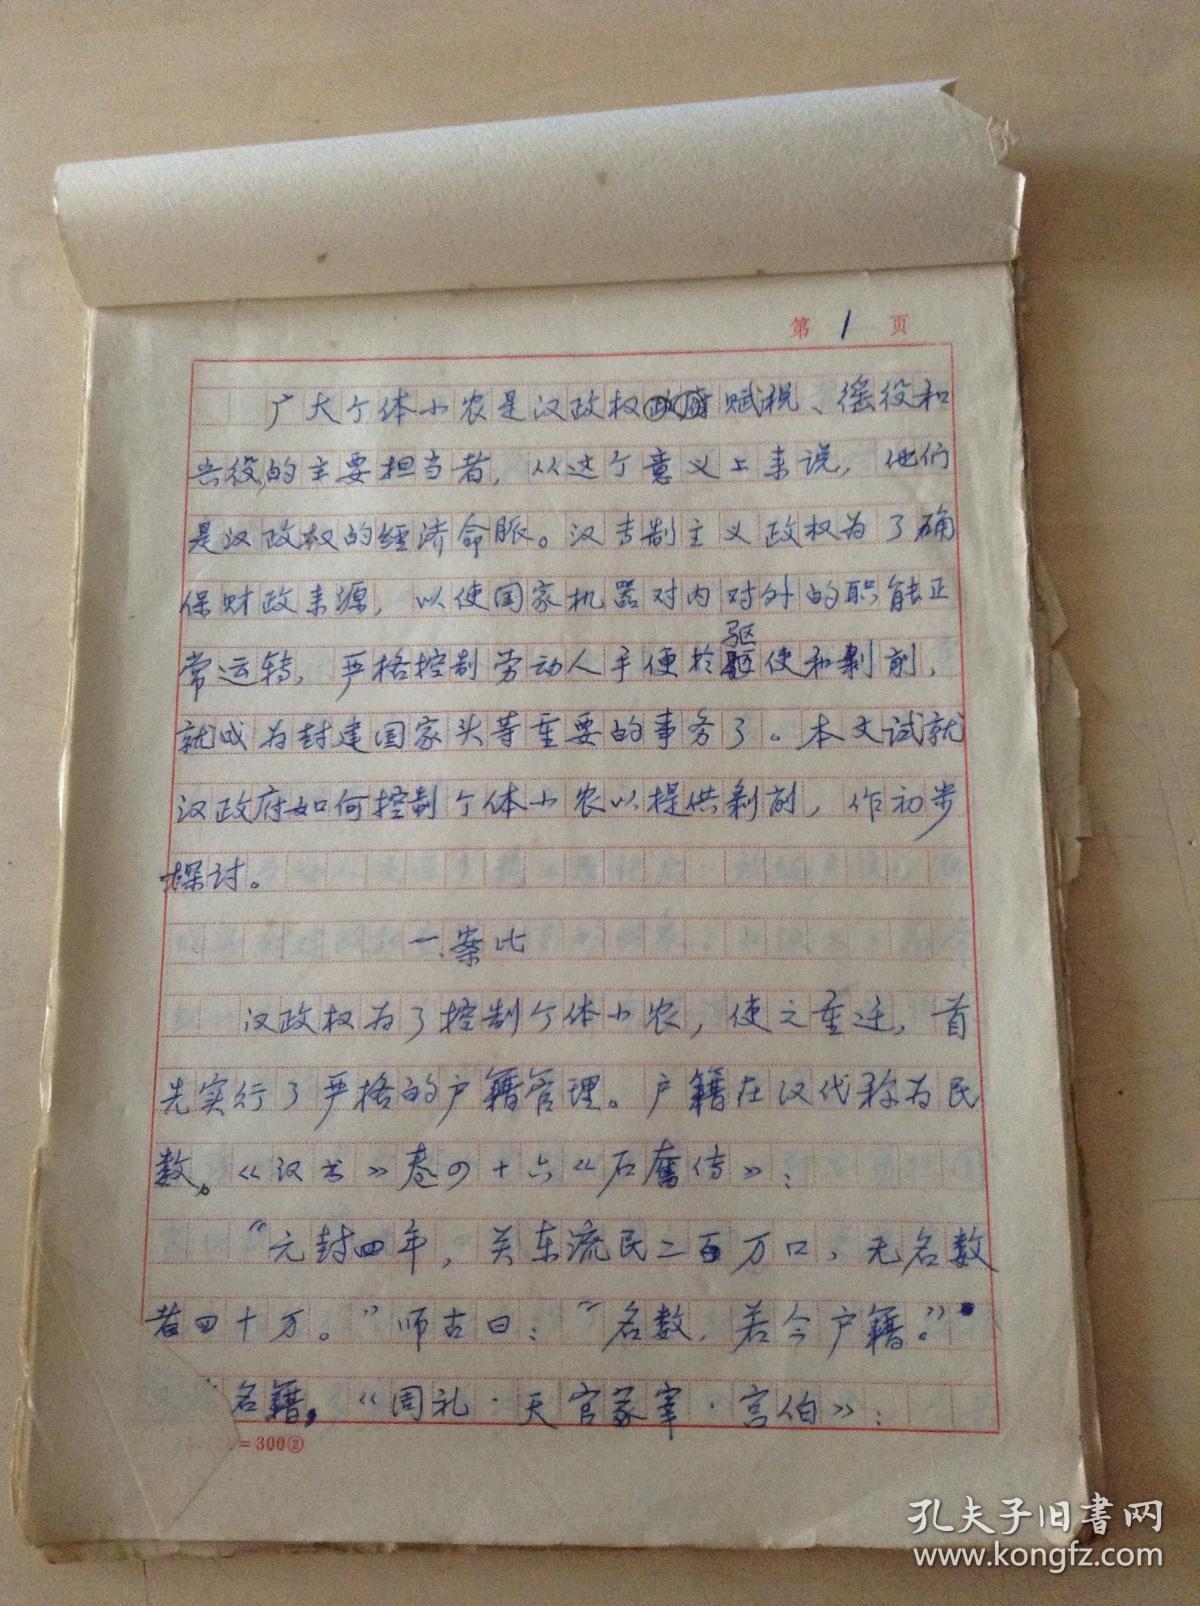 第 1 页
广大个体小农是汉政权赋税、徭役和
兵役的主要担当者，从这个意义上来说，他们
是汉政权的经济命脉。汉专制主义政权为了确
保财政来源，以使国家机器对内对外的职能正
驱
常运转，严格控制劳动人手便於驱使和剥削，
就成为封建国家头等重要的事务了。本文试就
汉政府如何控制个体小农以提供剥削，作初步
探讨。
一、案比
汉政权为了控制个体小农，使之重迁，首
先实行了严格的户籍管理。户籍在汉代称为民
数。《汉书》卷四十六《石奋传》：
“元封四年，关东流民二百万口，无名数
者四十万。”师古曰：“名数，若今户籍。”
名籍，《周礼·天官冢宰·宫伯》：
=300②
孔夫子旧书网
www.kongfz.com